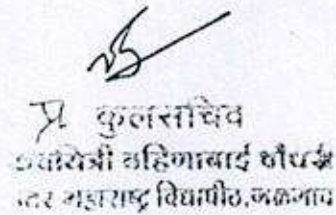 प्र कुलसचिव
कवयित्री बहिणाबाई चौधरी
उत्तर महाराष्ट्र विद्यापीठ, जळगाव